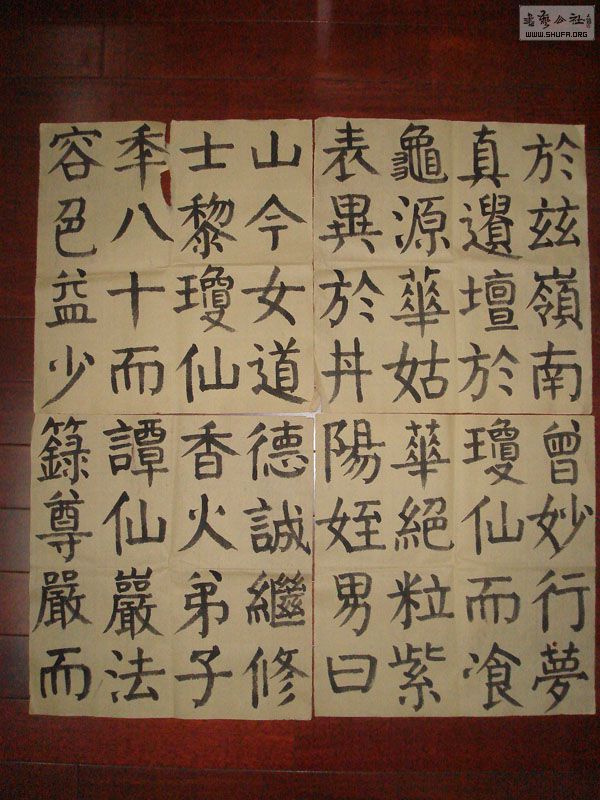 於兹嶺南
真遺壇於
龜源華姑
表異於丼
山今女道
士黎瓊仙
秊八十而
容色益少
曾妙行夢
瓊仙而飡
華絕粒紫
陽姪男曰
德誠繼修
香火弟子
譚仙巖法
籙尊嚴而
書藝公社
WWW.SHUFA.ORG